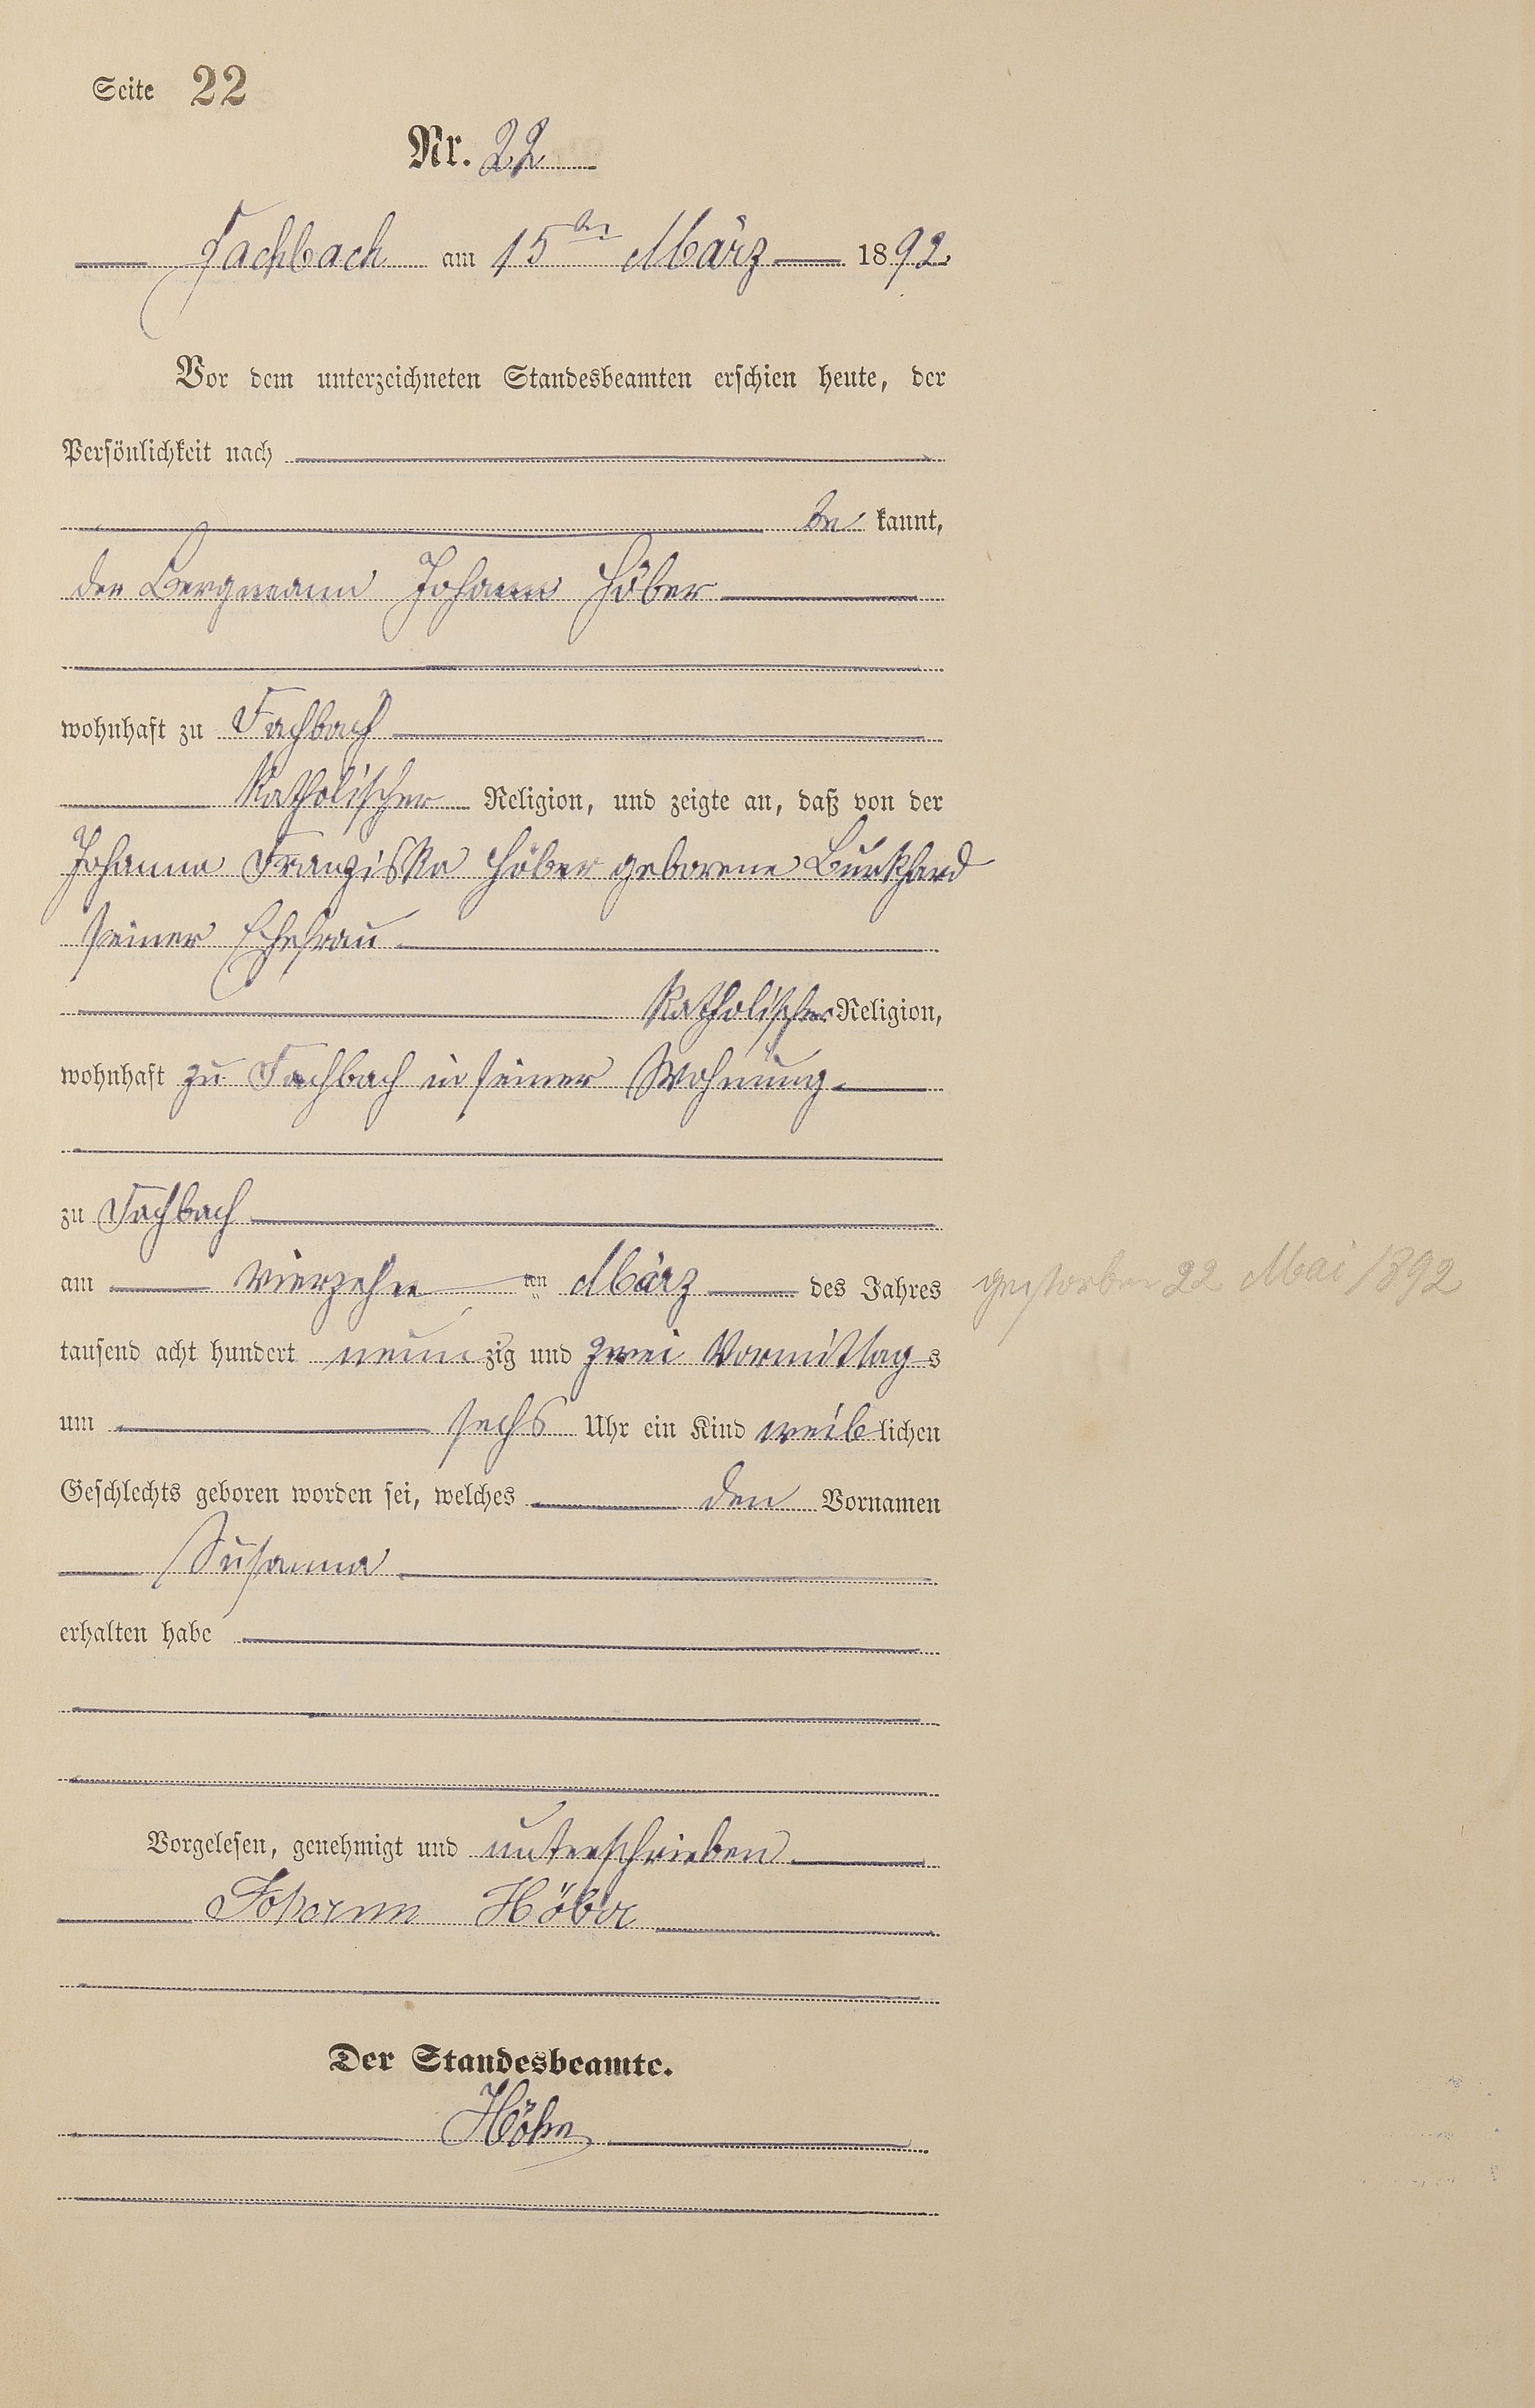 Seite 22
Nr. 22
Fachbach am 15ten März 1892
Vor dem unterzeichneten Standesbeamten erschien heute, der
Persönlichkeit nach
be kannt,
der Bergmann Johann Höber
wohnhaft zu Fachbach
Katholischer Religion, und zeigte an, daß von der
Johanna Franziska Höber geborene Burkhard
seiner Ehefrau
Katholischer Religion,
wohnhaft zu Fachbach in seiner Wohnung
zu Fachbach
am vierzehn ten März des Jahres
gestorben 22 Mai 1892
tausend acht hundert neun zig und zwei Vormittag s
um sechs Uhr ein Kind weib lichen
Geschlechts geboren worden sei, welches den Vornamen
Susanna
erhalten habe
Vorgelesen, genehmigt und unterschrieben
Johann Höber
Der Standesbeamte.
Höhn